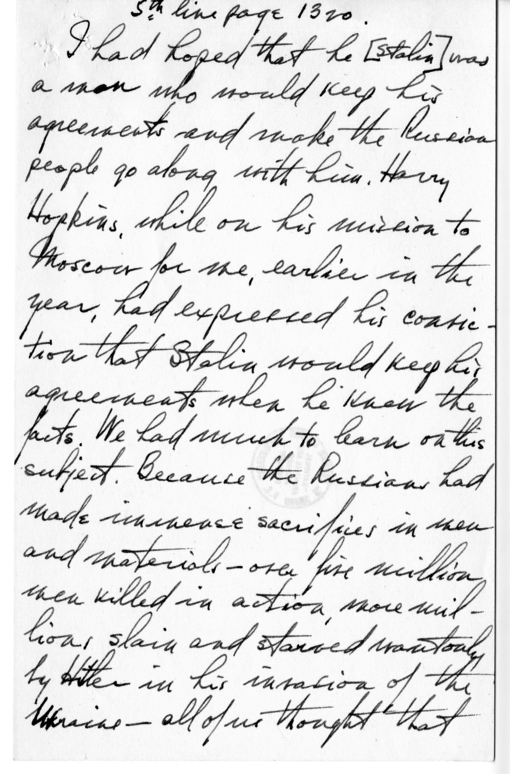 5th line page 1320.
I had hoped that he [Stalin] was
a man who would keep his
agreements and make the Russian
people go along with him. Harry
Hopkins, while on his mission to
Moscow for me, earlier in the
year, had expressed his convic-
tion that Stalin would keep his
agreements when he knew the
facts. We had much to learn on this
subject. Because the Russians had
made immense sacrifices in men
and materials – over five million
men killed in action, more mil-
lions slain and starved wantonly
by Hitler in his invasion of the
Ukraine – all of us thought that